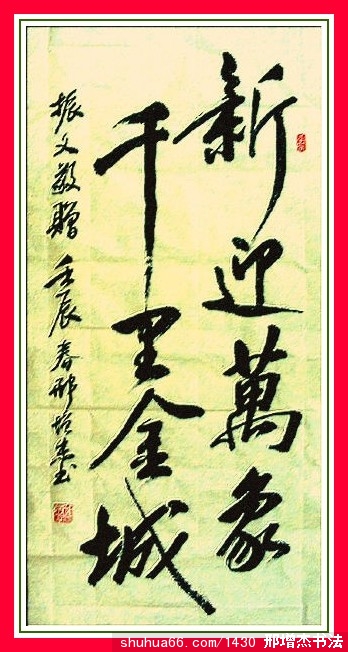 新迎萬象
千里金城
振文敬贈 壬辰春邢增杰书
shuhua66.com/1430 邢增杰书法